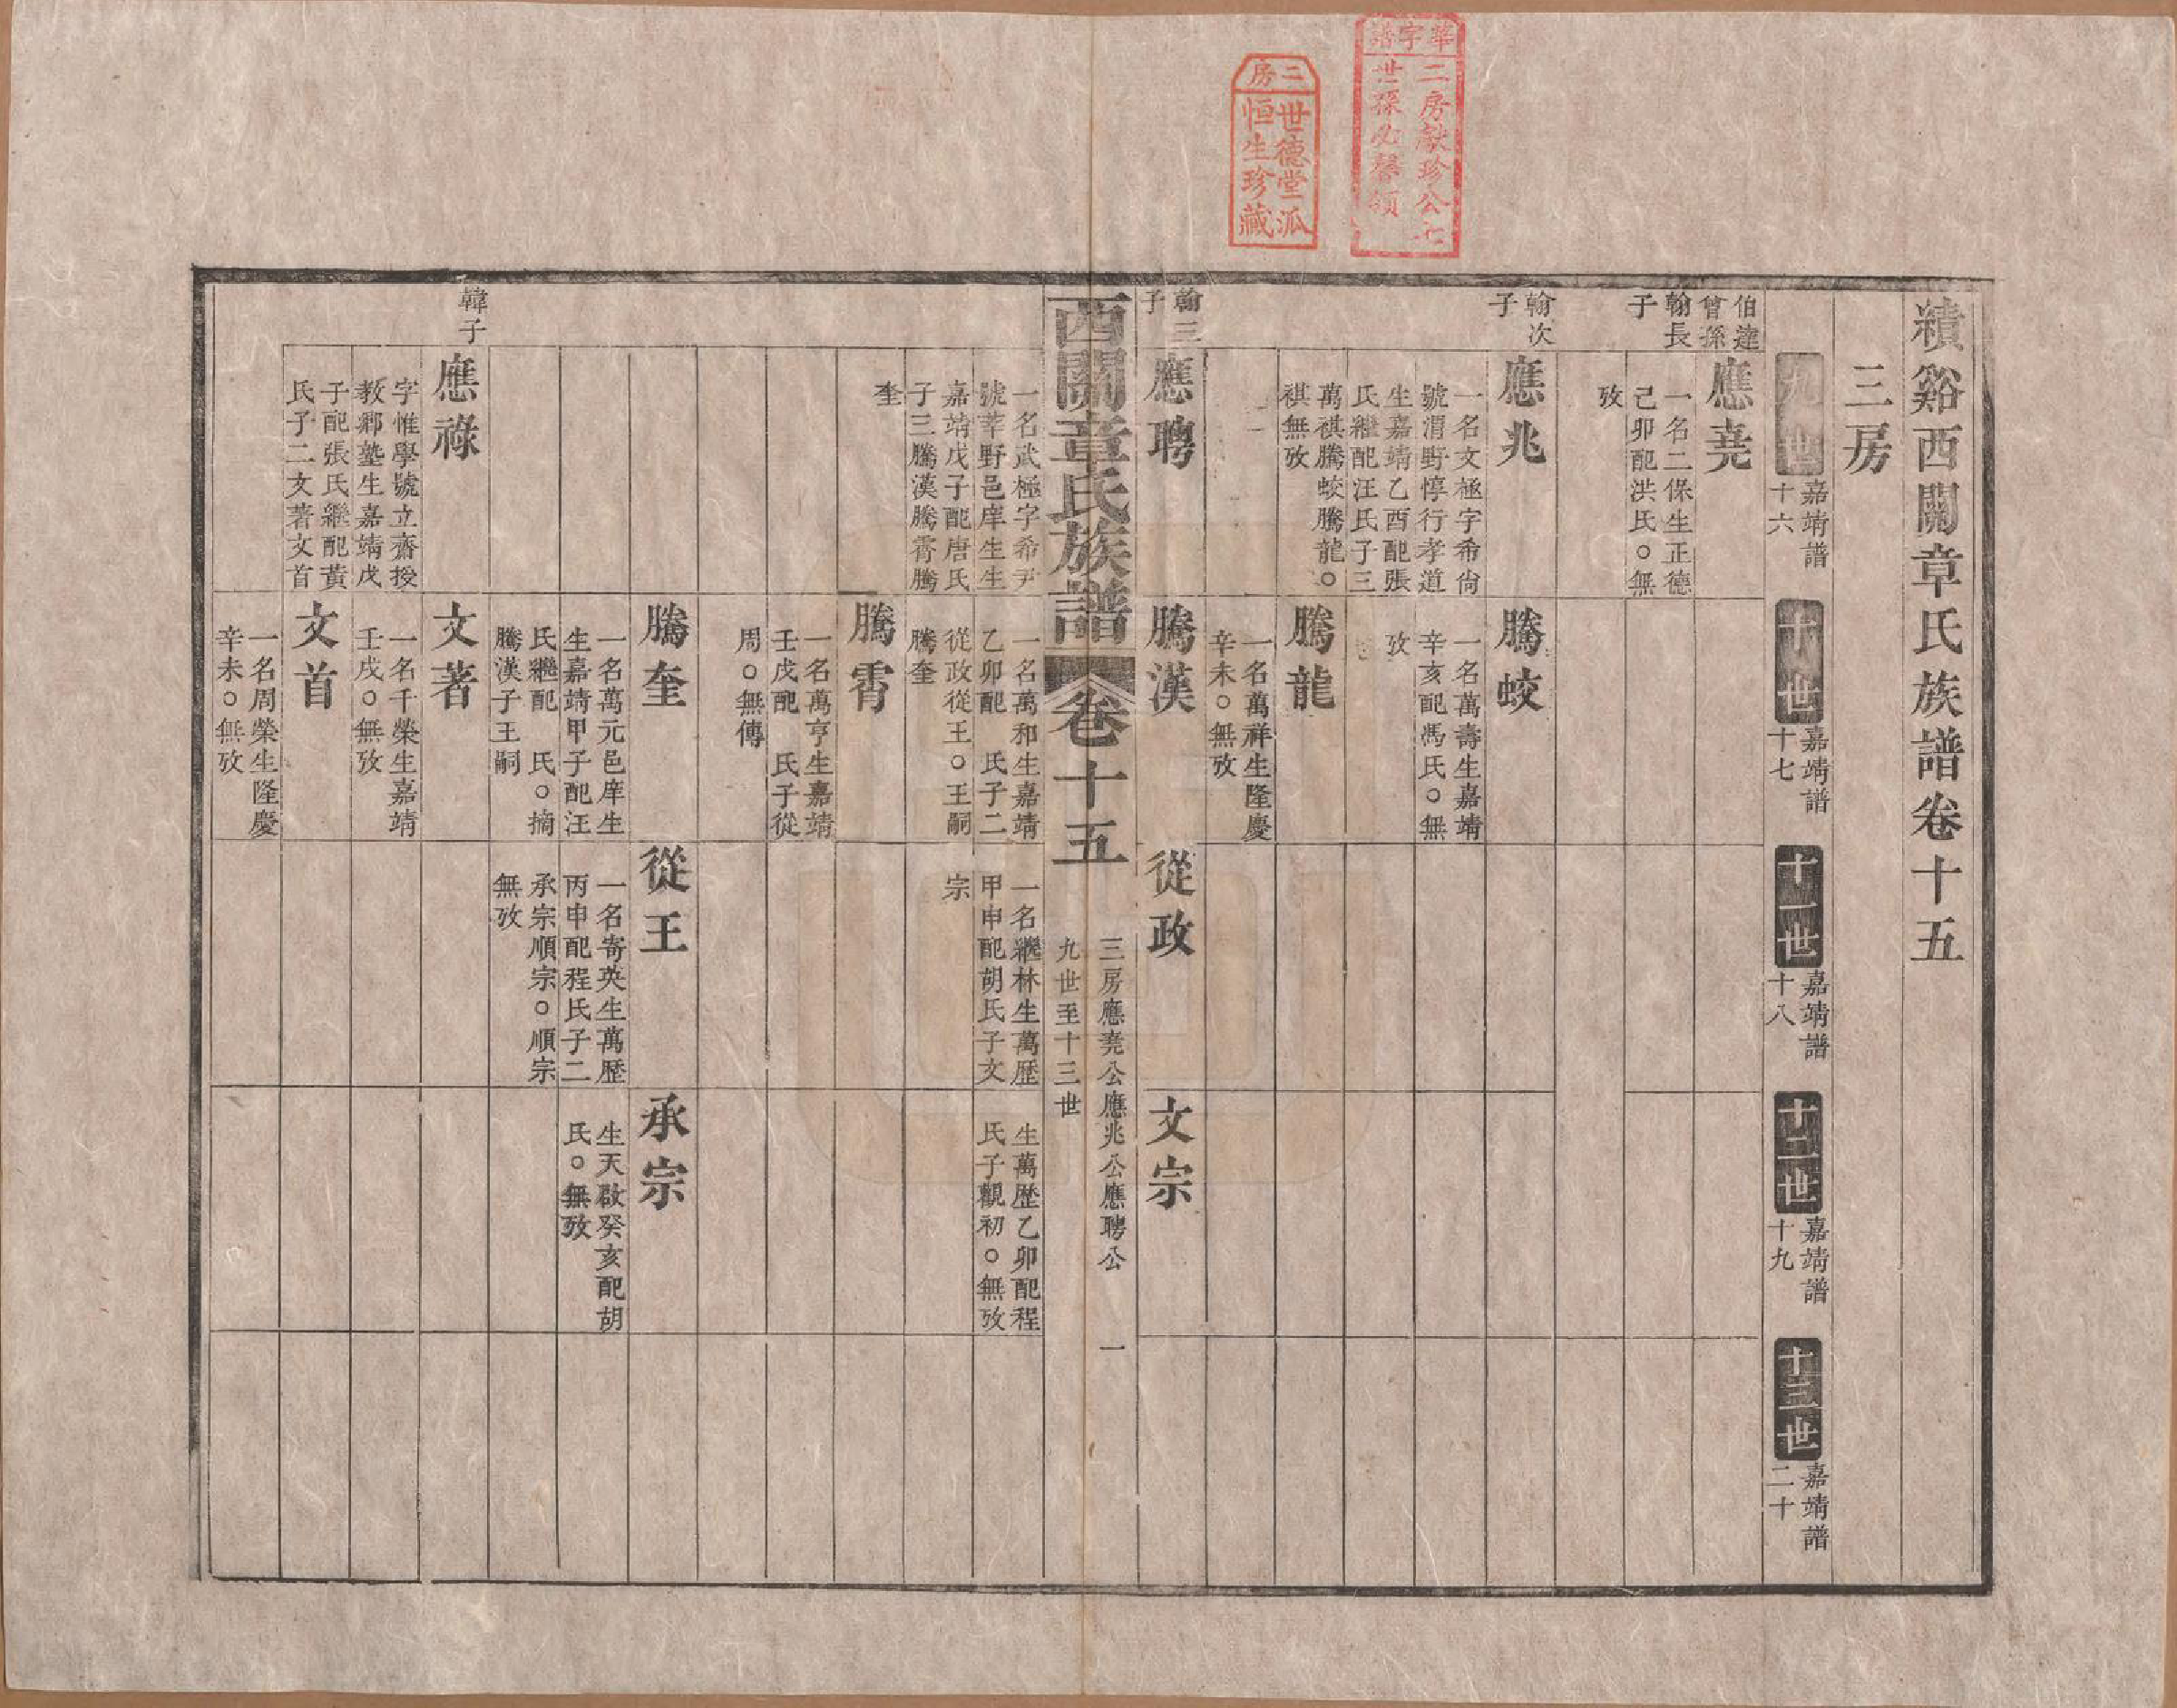 華字譜
二房獻珍公七
世孫必馨領
三房
世德堂派
恒生珍藏
績谿西關章氏族譜卷十五
三房
九世
嘉靖譜
十六
十世
嘉靖譜
十七
十一世
嘉靖譜
十八
十二世
嘉靖譜
十九
十三世
嘉靖譜
二十
伯達
曾孫
翰長
子
應堯
一名二保生正德
己卯配洪氏○無
攷
翰次
子
應兆
一名文極字希尙
號渭野惇行孝道
生嘉靖乙酉配張
氏繼配汪氏子三
萬祺騰蛟騰龍○
祺無攷
騰蛟
一名萬壽生嘉靖
辛亥配馮氏○無
攷
騰龍
一名萬祥生隆慶
辛未○無攷
翰三
子
應聘
一名武極字希尹
號莘野邑庠生生
嘉靖戊子配唐氏
子三騰漢騰霄騰
奎
騰漢
一名萬和生嘉靖
乙卯配　氏子二
從政從王○王嗣
騰奎
從政
一名繼林生萬歷
甲申配胡氏子文
宗
文宗
生萬歷乙卯配程
氏子觀初○無攷
西關章氏族譜
卷十五
三房應堯公應兆公應聘公
九世至十三世
一
騰霄
一名萬亨生嘉靖
壬戌配　氏子從
周○無傳
騰奎
一名萬元邑庠生
生嘉靖甲子配汪
氏繼配　氏○摘
騰漢子王嗣
從王
一名寄英生萬歷
丙申配程氏子二
承宗順宗○順宗
無攷
承宗
生天啟癸亥配胡
氏○無攷
韓子
應祿
字惟學號立齋授
教鄉塾生嘉靖戊
子配張氏繼配黃
氏子二文著文首
文著
一名千榮生嘉靖
壬戌○無攷
文首
一名周榮生隆慶
辛未○無攷